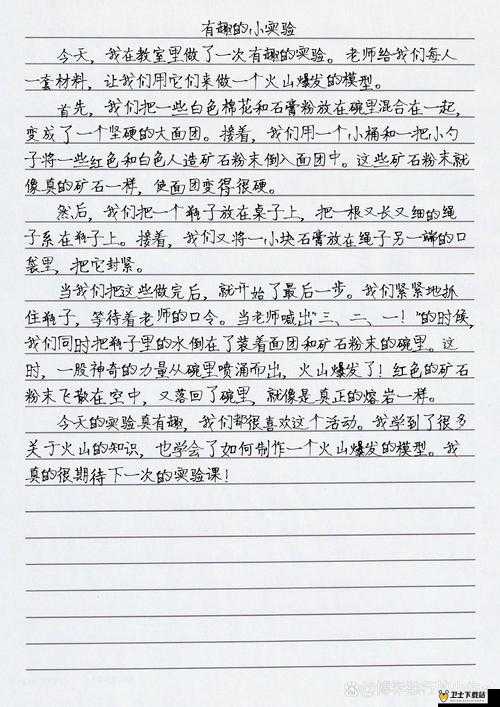 有趣的小实验
今天，我在教室里做了一次有趣的实验。老师给我们每人
一套材料，让我们用它们来做一个火山爆发的模型。
首先，我们把一些白色棉花和石膏粉放在碗里混合在一起，
变成了一个坚硬的大面团。接着，我们用一个小桶和一把小勺
子将一些红色和白色人造矿石粉末倒入面团中。这些矿石粉末就
像真的矿石一样，使面团变得很硬。
然后，我们把一个瓶子放在桌子上，把一根又长又细的绳
子系在瓶子上。接着，我们又将一小块石膏放在绳子另一端的口
袋里，把它封紧。
当我们把这些做完后，就开始了最后一步。我们紧紧地抓
住瓶子，等待着老师的口令。当老师喊出“三、二、一！”的时候，
我们同时把瓶子里的水倒在了装着面团和矿石粉末的碗里。这
时，一股神奇的力量从碗里喷涌而出，火山爆发了！红色的矿石
粉末飞散在空中，又落回了碗里，就像是真正的熔岩一样。
今天的实验真有趣，我们都很喜欢这个活动。我学到了很多
关于火山的知识，也学会了如何制作一个火山爆发的模型。我
真的很期待下一次的实验课！
卫士下载站